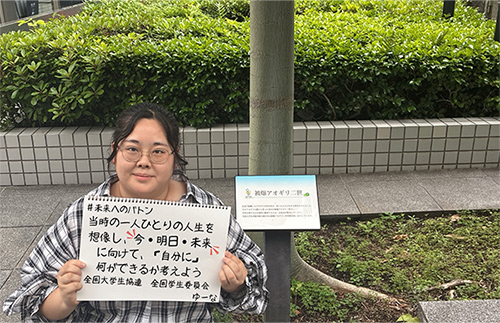 #未来へのバトン
当時の一人ひとりの人生を
想像し、今・明日・未来
に向けて、『自分に』
何ができるか考えよう
全国大学生協連 全国学生委員会
ゆーな
被爆アオギリ二世